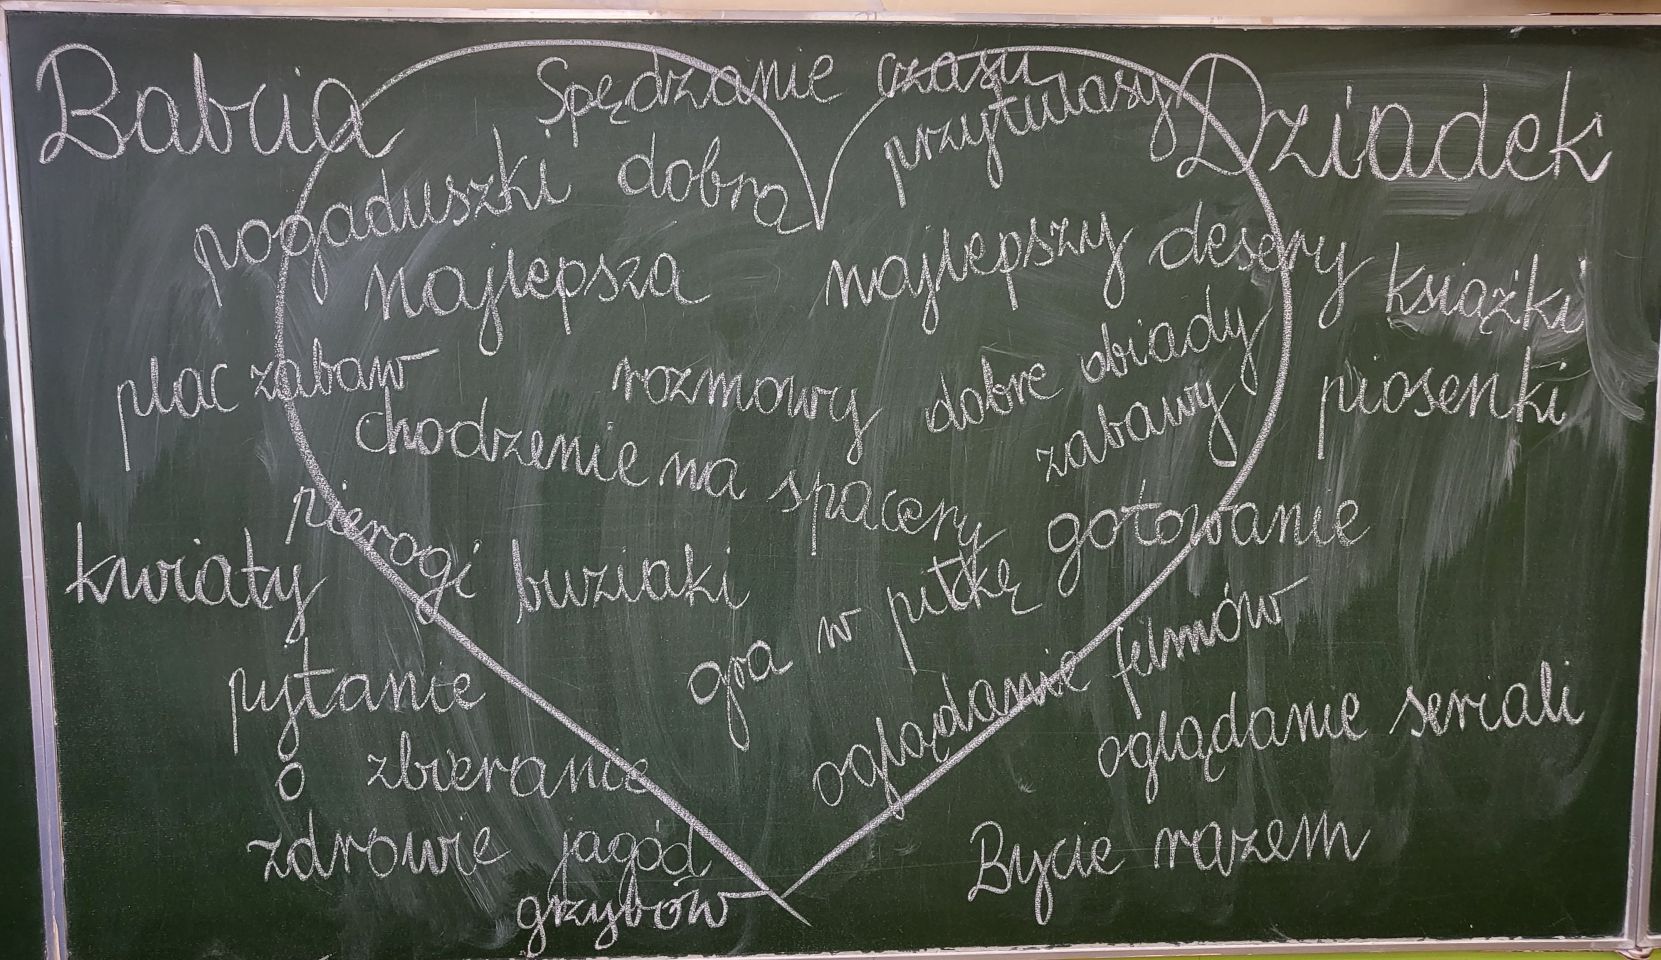 Babcia
Dziadek
Spędzanie czasu
przytulasy
pogaduszki
dobra
najlepsza
najlepszy
desery
książki
plac zabaw
rozmowy
dobre obiady
piosenki
chodzenie na spacery
zabawy
pierogi
gotowanie
kwiaty
buziaki
gra w piłkę
oglądanie filmów
pytanie
o
zdrowie
oglądanie seriali
zbieranie
jagód
grzybów
Bycie razem